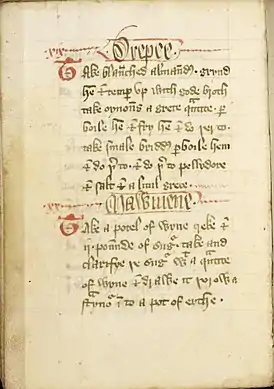 xix Drepee
Take blanched almandes. grynd
he & temp up with gode broth
take oynons a grete qntite. p
boile he & fry he & do þer to.
take smale bridds pboile hem
& do þto. & do þto pelydore
& salt & a litul grece.
xx Mawmene
Take a potel of wyne greke &
ii. pounde of sug. take and
clarifye þe sug wt a qntite
of wyne & drawe it þorow a
styno in to a pot of erthe.